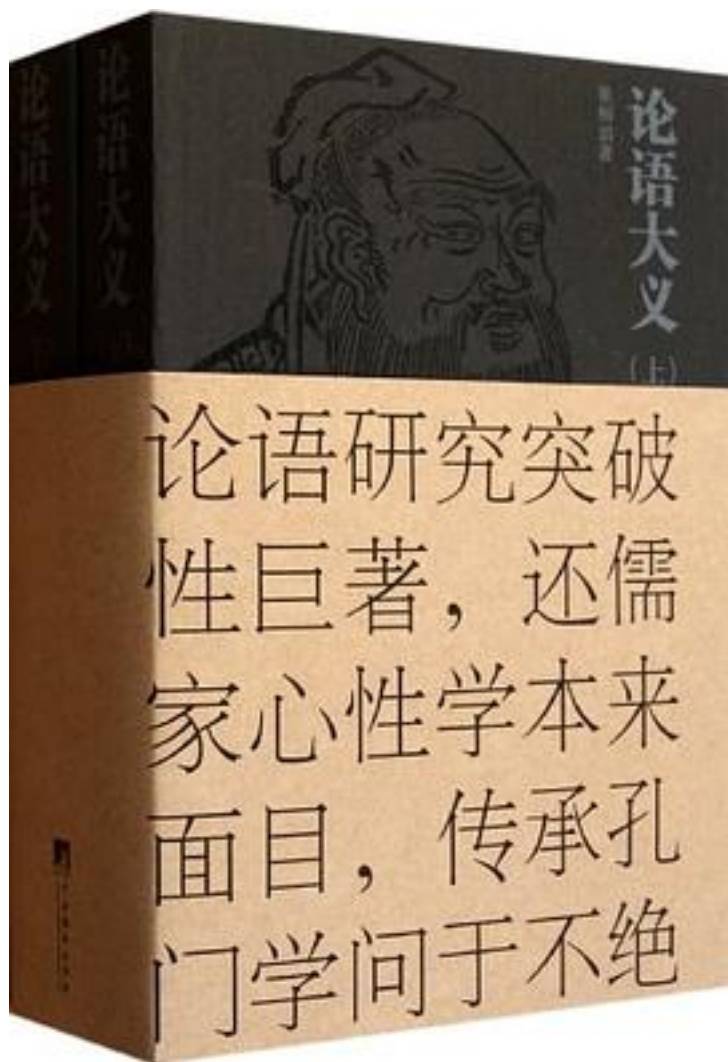 论语大义
论语大义
论语大义
（上）
论语研究突破
性巨著，还儒
家心性学本来
面目，传承孔
门学问于不绝